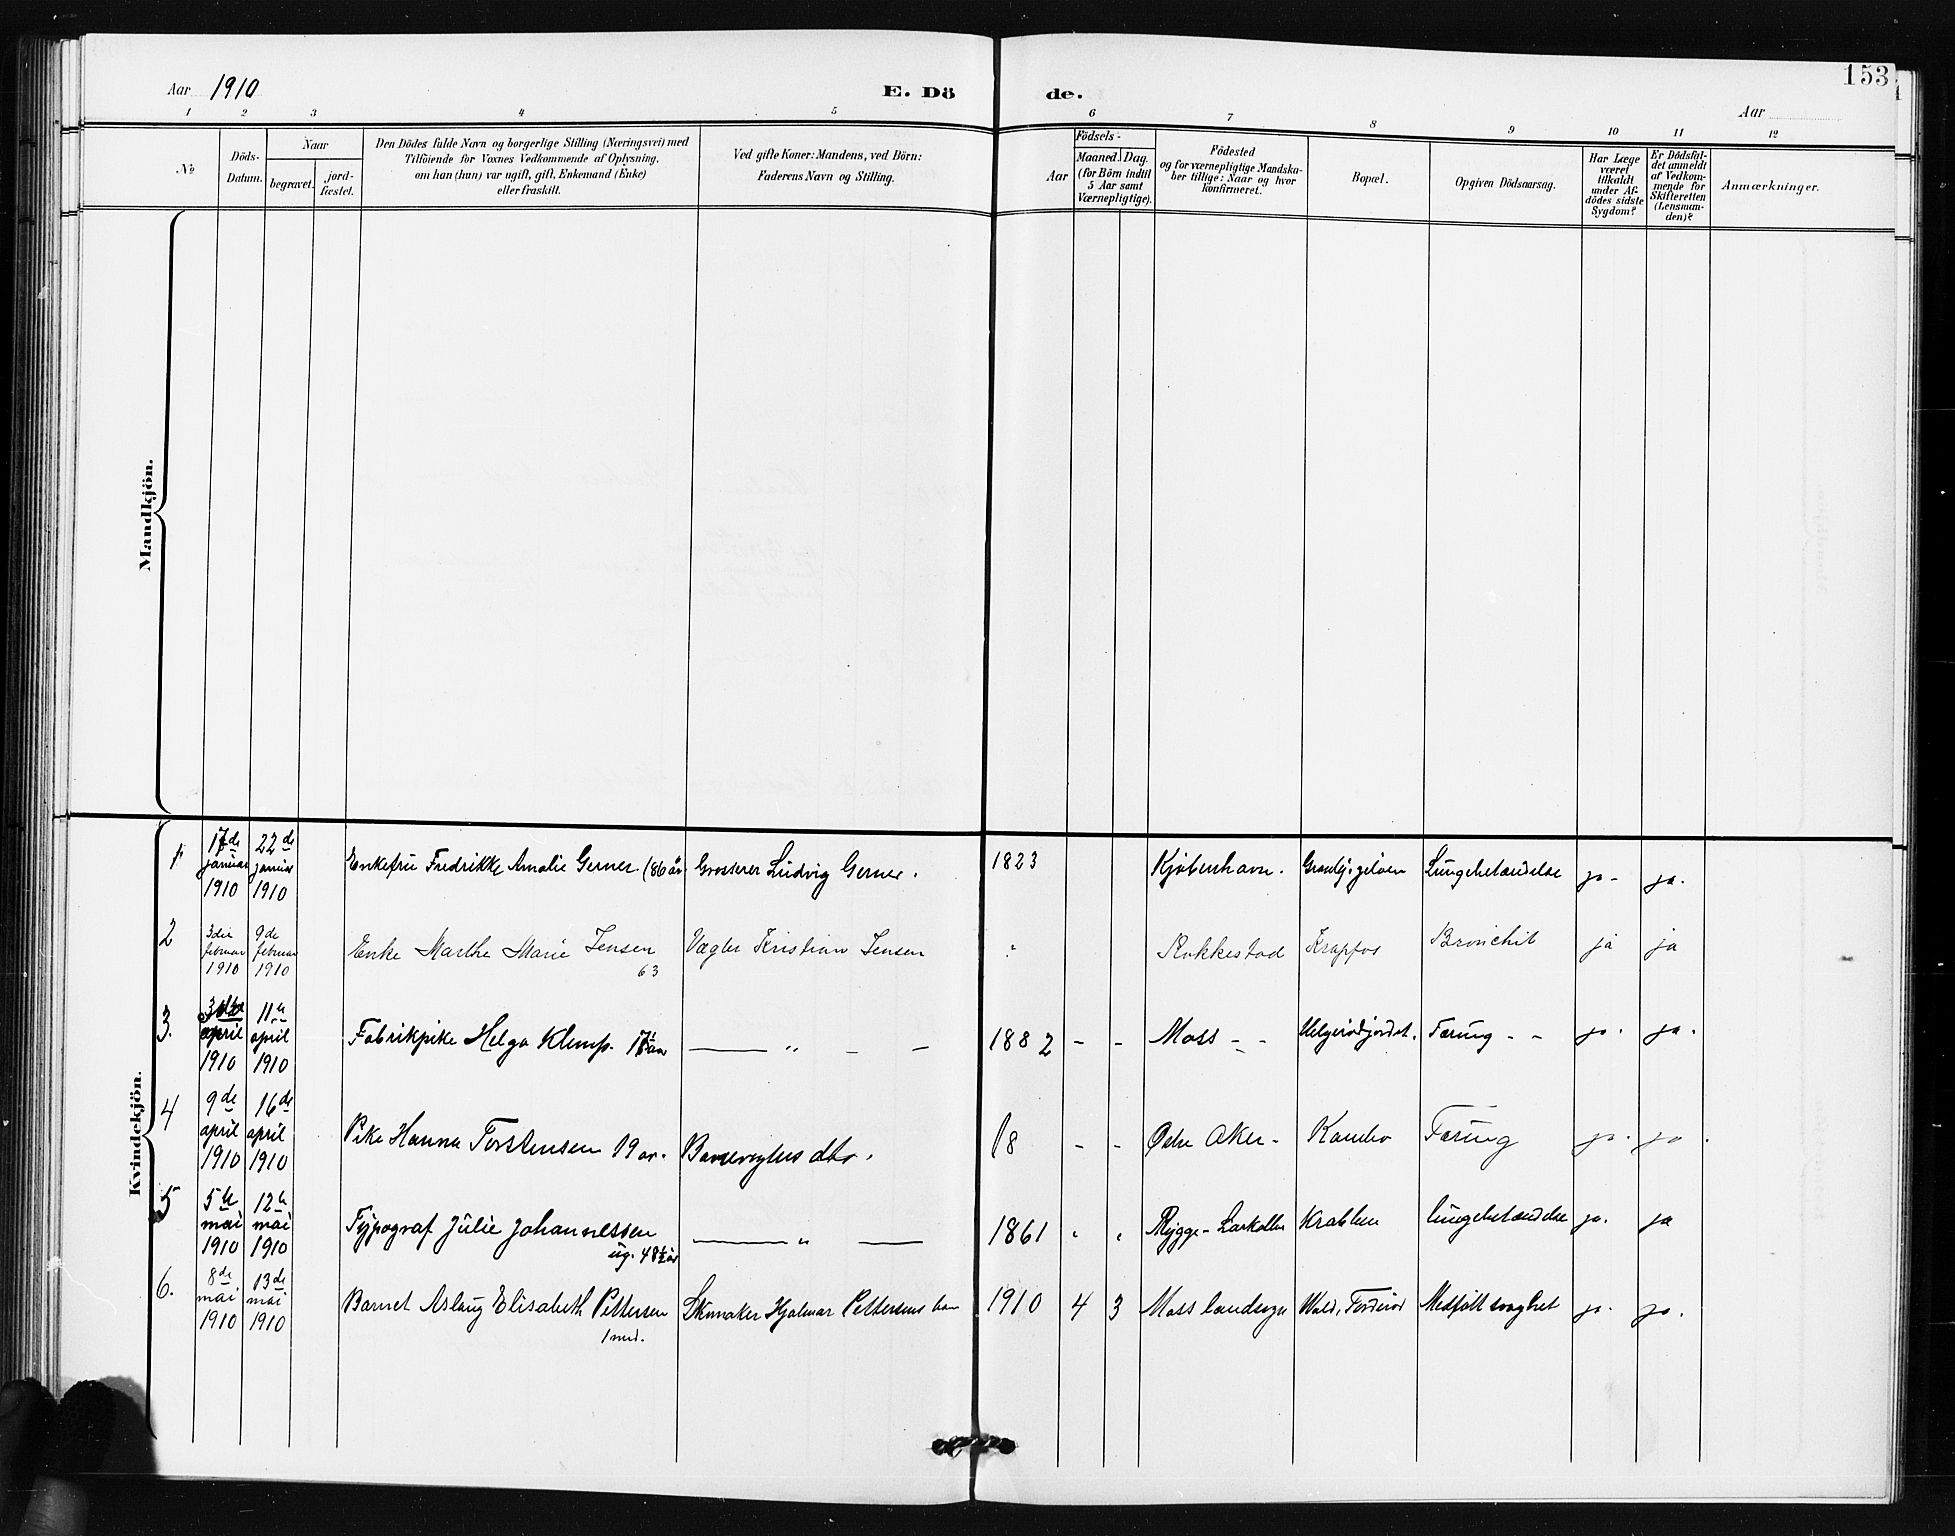 153
Aar 1910
E. Dö de.
Aar
1 2 3 4 5 6 7 8 9 10 11 12
No
Döds-
Datum.
Naar
begravet.
jord-
fæstet.
Den Dödes fulde Navn og borgerlige Stilling (Næringsvei) med
Tilföiende for Voxnes Vedkommende af Oplysning,
om han (hun) var ugift, gift, Enkemand (Enke)
eller fraskilt.
Ved gifte Koner: Mandens, ved Börn:
Faderens Navn og Stilling.
Aar
Födsels-
Maaned. Dag.
(for Börn indtil
5 Aar samt
Værnepligtige).
Födested
og for værnepligtige Mandska-
ber tillige: Naar og hvor
konfirmeret.
Bopæl.
Opgiven Dödsaarsag.
Har Læge
været
tilkaldt
under Af-
dödes sidste
Sygdom?
Er Dödsfal-
det anmeldt
af Vedkom-
mende for
Skifteretten
(Lensman-
den)?
Anmærkninger.
Mandkjön.
Kvindekjön.
1 17de januar 1910 22de januar 1910 Enkefru Fredrikke Amalie Gerner. (86 år Grosserer Ludvig Gerner. 1823 Kjøbenhavn. Lungebetændelse ja- ja.
2 3die februar 1910 9de februar 1910 Enke Marthe Marie Jensen 63 Vægter Kristian Jensen Rakkestad Krapfos Bronchit ja ja
3. april 1910 11te april 1910 Fabrikpike Helga Klemp. — " — — 1882 - - Moss - - Helgerødjordet. Tæring - - ja. ja.
4 9de april 1910 16de april 1910 Pike Hanna Torstensen 19 år. Banevogters dtr. 18 - - Østre Aker - Kambo Tæring ja. ja.
5 5te mai 1910 12te mai 1910 Typograf Julie Johannessen ug. 48½ år — " — 1861 " " Rygge - Larkollen Krabben lungebetændelse ja. ja
6. 8de mai 1910 13de mai 1910 Barnet Aslaug Elisabeth Pettersen 1 mnd. Skomaker Hjalmar Pettersens barn 1910 4 3 Moss landsogn Medfødt svaghet ja. ja.